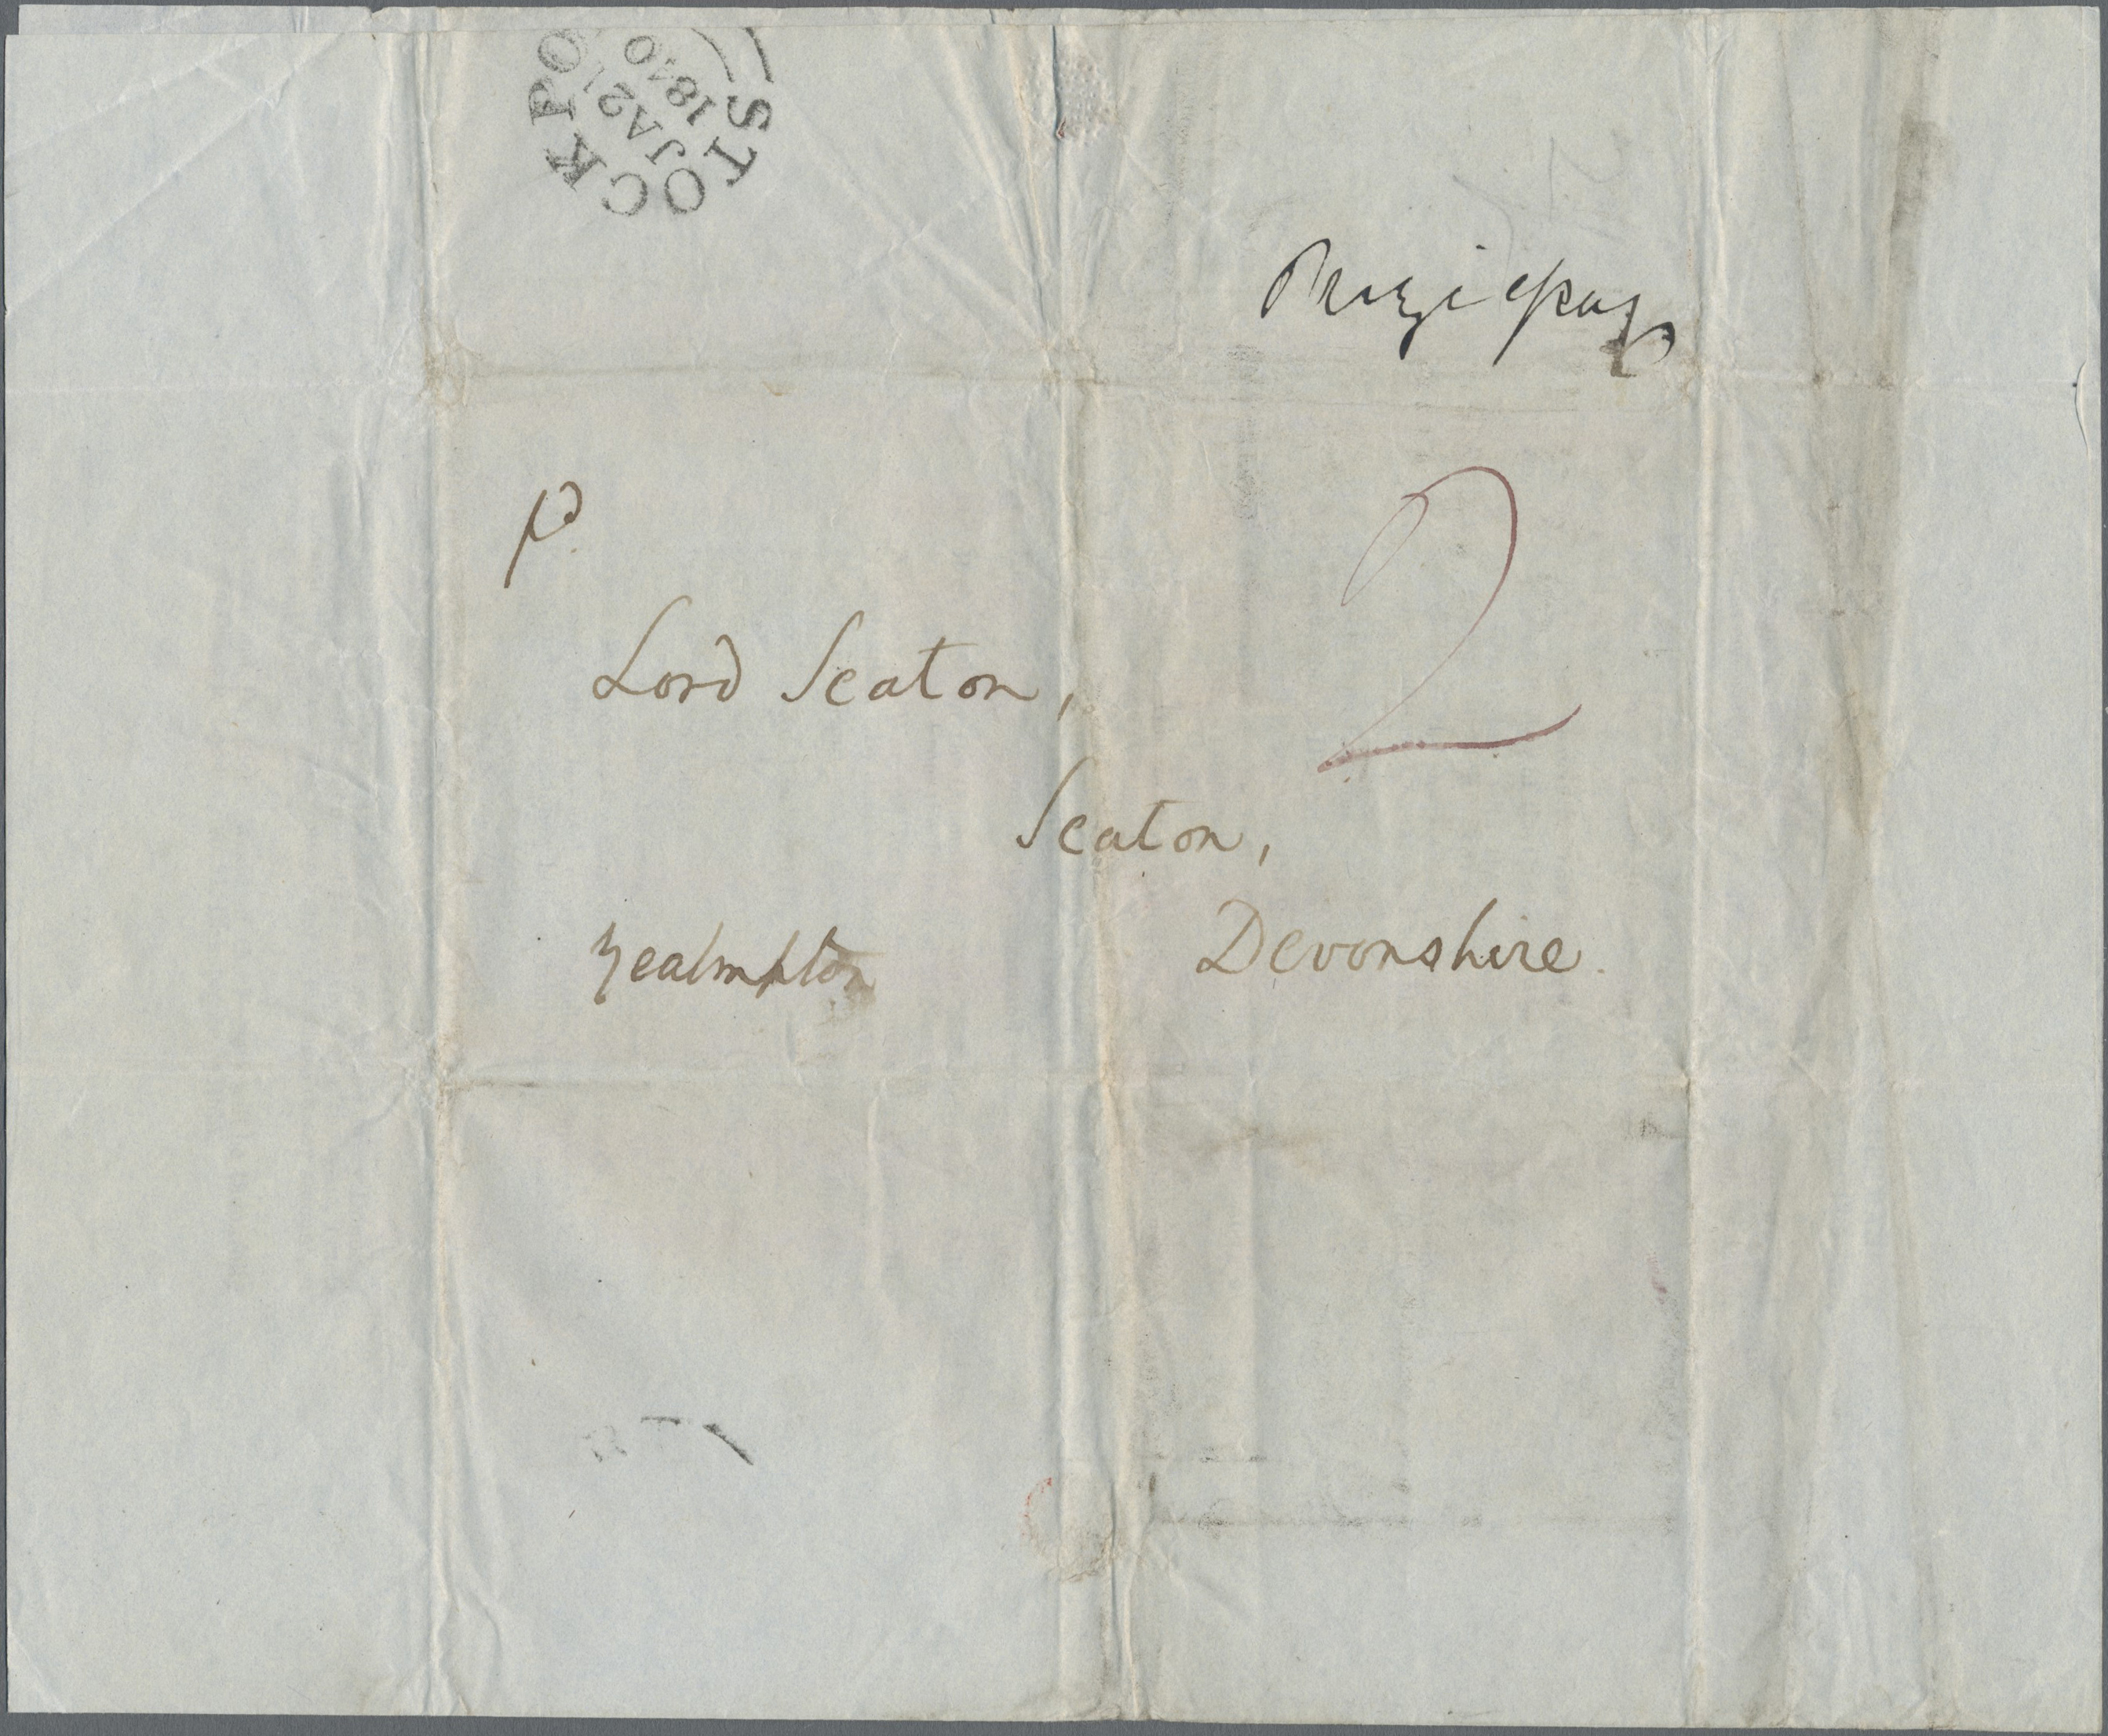 STOCKPO
JA21
1840
p.
2
Lord Seaton,
Seaton,
Yealmpton
Devonshire.